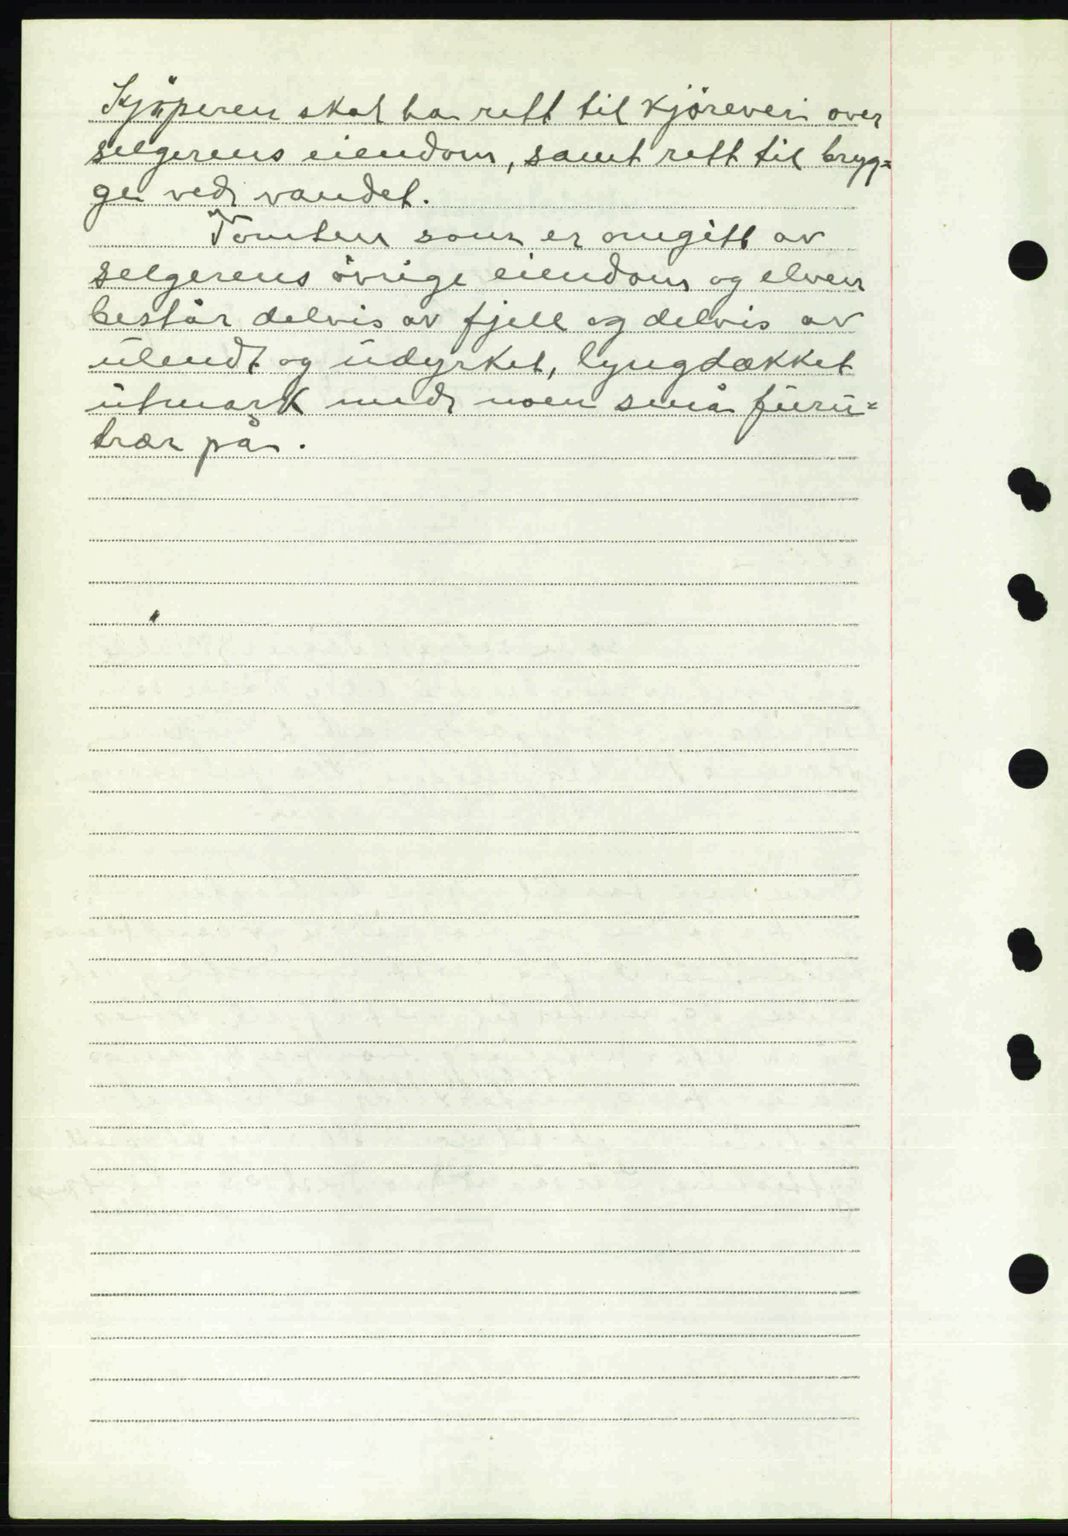 Kjöperen skal ha rett til kjöreveri over
selgerens eiendom, samt rett til bryg=
ge ved vandet.
Tomten som er omgitt av
selgerens övrige eiendom og elven
består delvis av fjell og delvis av
ulendt og udyrket, lyngdækket
utmark med noen små furu=
trær på.